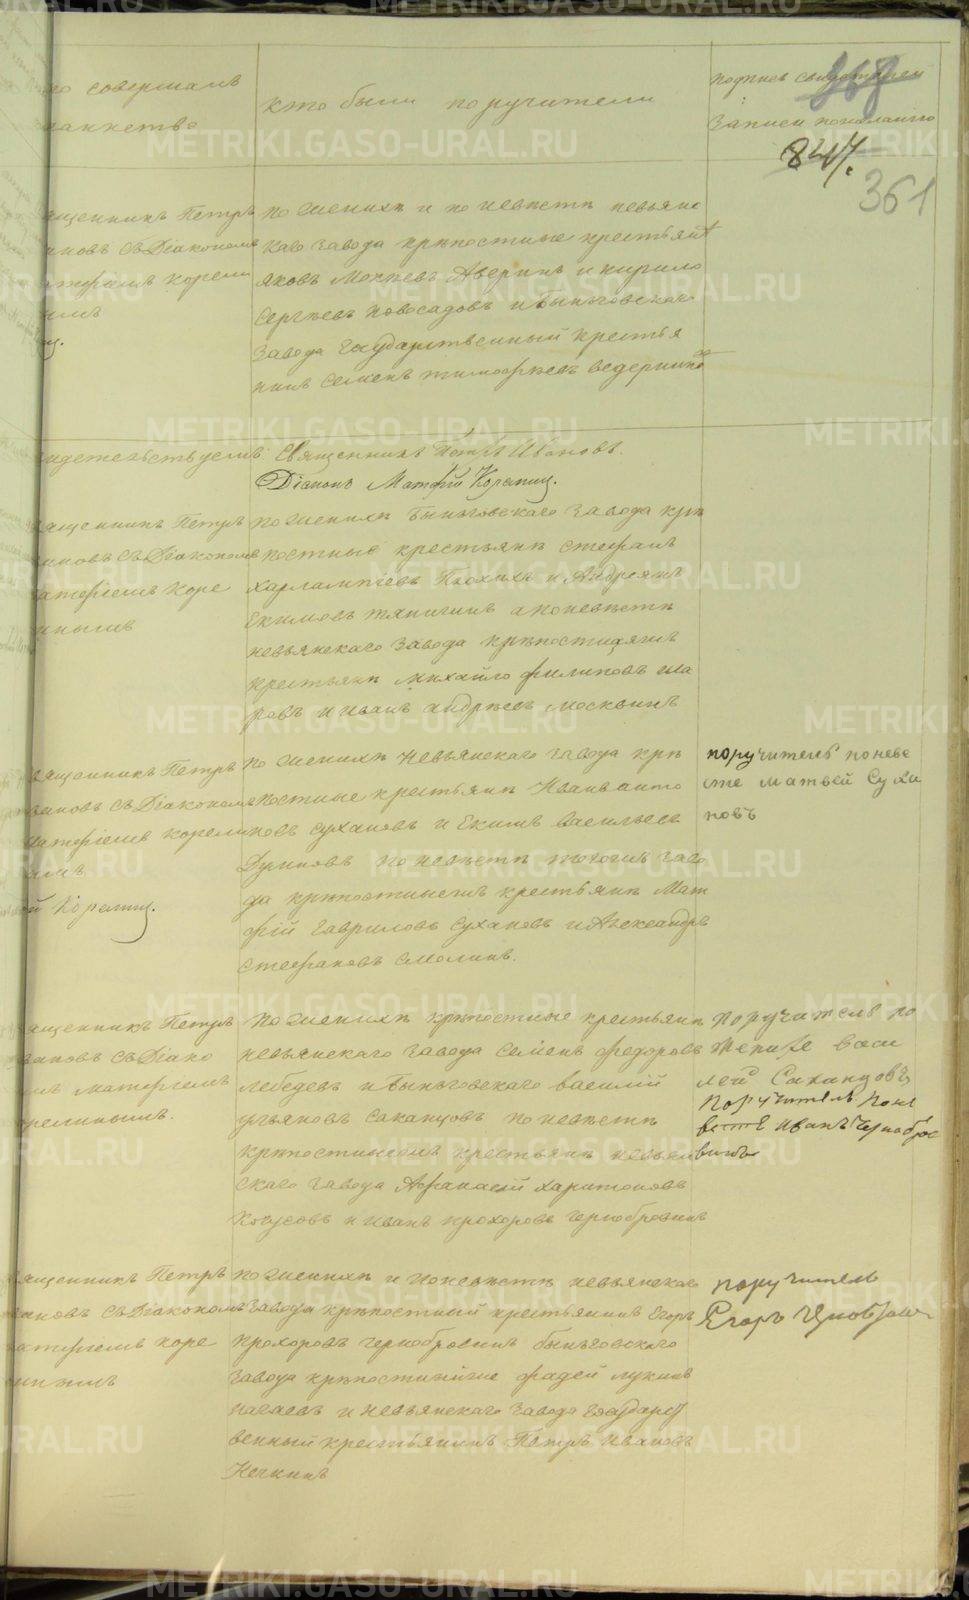 то совершалъ
таинство
кто были поручители
подпись свидетелей
записи по желанию
368
847.
361
ященникъ Петръ
ановъ съ Діакономъ
атфіемъ Корели
нымъ
по женихѣ и по невѣстѣ невьянс
каго завода крѣпостные крестьян
яковъ Мокѣевъ Аверинъ и кирило
Сергѣевъ новосадовъ и быньговскаго
завода государственный крестья
нинъ Семенъ тимофѣевъ ведерник
идетельствуемъ
Священникъ Петръ Ивановъ.
Діаконъ Матфій Корелинъ.
ященникъ Петръ
ановъ съ Діакономъ
атфіемъ Коре
нымъ
по женихѣ Быньговскаго завода крѣ
постные крестьяне стефанъ
харлампіевъ Плохихъ и Андреянъ
Екимовъ тяпичинъ а по невѣстѣ
невьянскаго завода крѣпостные
крестьяне михайло филиповъ ша
ровъ и иванъ андреевъ москвинъ
вященникъ Петръ
вановъ съ Діакономъ
матфіемъ корели
нымъ
й Корелинъ.
по женихѣ Невьянскаго завода крѣ
постные крестьяне Иванъ анто
новъ сухановъ и Екимъ васильевъ
по невѣстѣ тогожъ заво
да крѣпостныежъ крестьяне Мат
фій гавриловъ сухановъ и Александръ
стефановъ смолинъ.
поручителъ поневе
сте матвей Суха
новъ
ященникъ Петръ
вановъ съ Діако
мъ матфіемъ
орелинымъ.
по женихѣ крѣпостные крестьяне
невьянскаго завода Семенъ федоровъ
лебедевъ и быньговскаго василій
ульяновъ саканцовъ по невѣстѣ
крѣпостныежъ крестьяне невьян
скаго завода Афанасій харитоновъ
и иванъ прохоровъ чернобровинъ
Поручитель по
женихе васи
лей Саканцовъ
Поручитель поне
весте иванъ Чернобро
винъ
ященникъ Петръ
вановъ съ Діакономъ
матфіемъ коре
нымъ
по женихѣ и поневѣстѣ невьянскаго
завода крѣпостный крестьянинъ Егоръ
прохоровъ чернобровинъ быньговскаго
завода крѣпостный же фадей лукинъ
и невьянскаго завода государст
венный крестьянинъ Петръ ивановъ
поручитель
Егоръ
METRIKI.GASO-URAL.RU